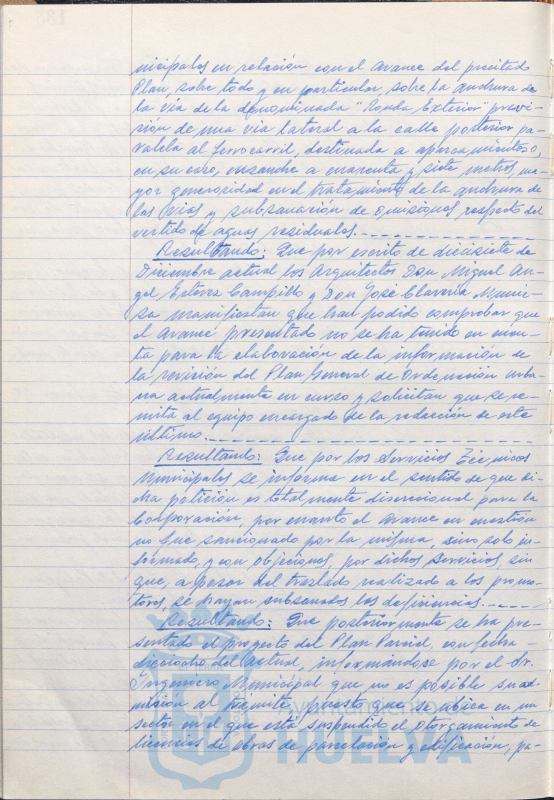 nicipales en relación con el avance del precitado
Plan, sobre todo y en particular sobre la anchura de
la vía de la denominada "Ronda Exterior" previ-
sión de una vía lateral a la calle posterior pa-
ralela al ferrocarril, destinada a aparcamientos o,
en su caso, ensanche a cuarenta y siete metros, ma-
yor generosidad en el tratamiento de la anchura de
las vías y subsanación de omisiones respecto del
vertido de aguas residuales.
Resultando: Que por escrito de diecisiete de
Diciembre actual los Arquitectos Don Miguel An-
gel Esteve Campillo y Don José Clavería
manifiestan que han podido comprobar que
el avance presentado no se ha tenido en cuen-
ta para la elaboración de la información de
la revisión del Plan General de Ordenación urba-
na actualmente en curso y solicitan que se re-
mita al equipo encargado de la redacción de este
último.
Resultando: Que por los Servicios Técnicos
Municipales se informa en el sentido de que di-
cha petición es totalmente discrecional para la
Corporación, por cuanto el avance en cuestión
no fue sancionado por la misma, sino solo in-
formado, y con objeciones, por dichos servicios, sin
que, a pesar del traslado realizado a los promo-
tores, se hayan subsanado las deficiencias.
Resultando: Que posteriormente se ha pre-
sentado el proyecto del Plan Parcial, con fecha
dieciocho del actual, informándose por el Sr.
Ingeniero Municipal que no es posible su ad-
misión al trámite puesto que se ubica en un
sector en el que está suspendido el otorgamiento de
licencias de obras de parcelación y edificación, pa-
Ayuntamiento
HUELVA